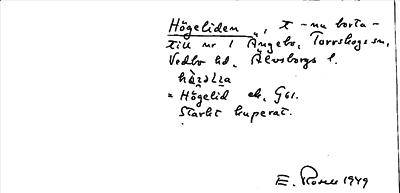 Högeliden, t - nu borta -
till nr 1 Ängebo, Torrskogs sn,
Vedbo hd, Älvsborgs l.
= Högelid ek. G61.
Starkt kuperat.
E. Rosell 1949